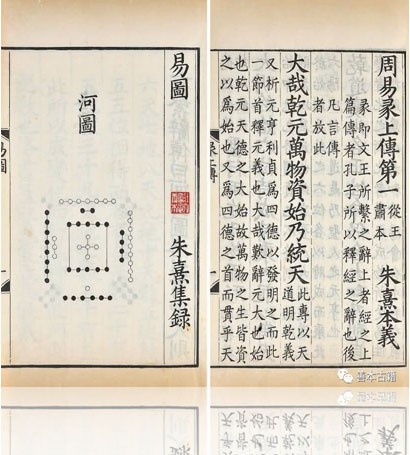 周易彖上傳第一 從王肅本 朱熹本義
彖即文王所繫之辭上者經之上
篇傳者孔子所以釋經之辭也後
凡言傳
者放此
大哉乾元萬物資始乃統天 此專以天道明乾義
又析元亨利貞爲四德以發明之而此
一節首釋元義也大哉歎辭元大也始
也乾元天德之大始故萬物之生皆資
之以爲始也又爲四德之首而貫乎天
易圖 朱熹集録
河圖
善本古籍